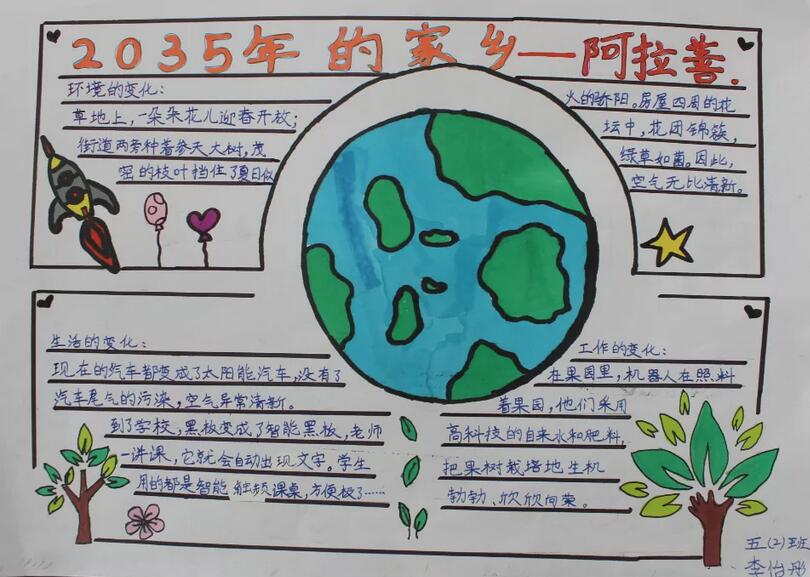 2035年的家乡——阿拉善.
环境的变化:
草地上,一朵朵花儿迎春开放;
街道两旁种着参天大树,茂
密的枝叶挡住了夏日似
火的骄阳。房屋四周的花
坛中,花团锦簇,
绿草如茵。因此,
空气无比清新。
生活的变化:
现在的汽车都变成了太阳能汽车,没有了
汽车尾气的污染,空气异常清新。
到了学校,黑板变成了智能黑板,老师
一讲课,它就会自动出现文字。学生
用的都是智能触频课桌,方便极了……
工作的变化:
在果园里,机器人在照料
着果园,他们采用
高科技的自来水和肥料,
把果树栽培地生机
勃勃、欣欣向荣。
五(2)班
李怡彤